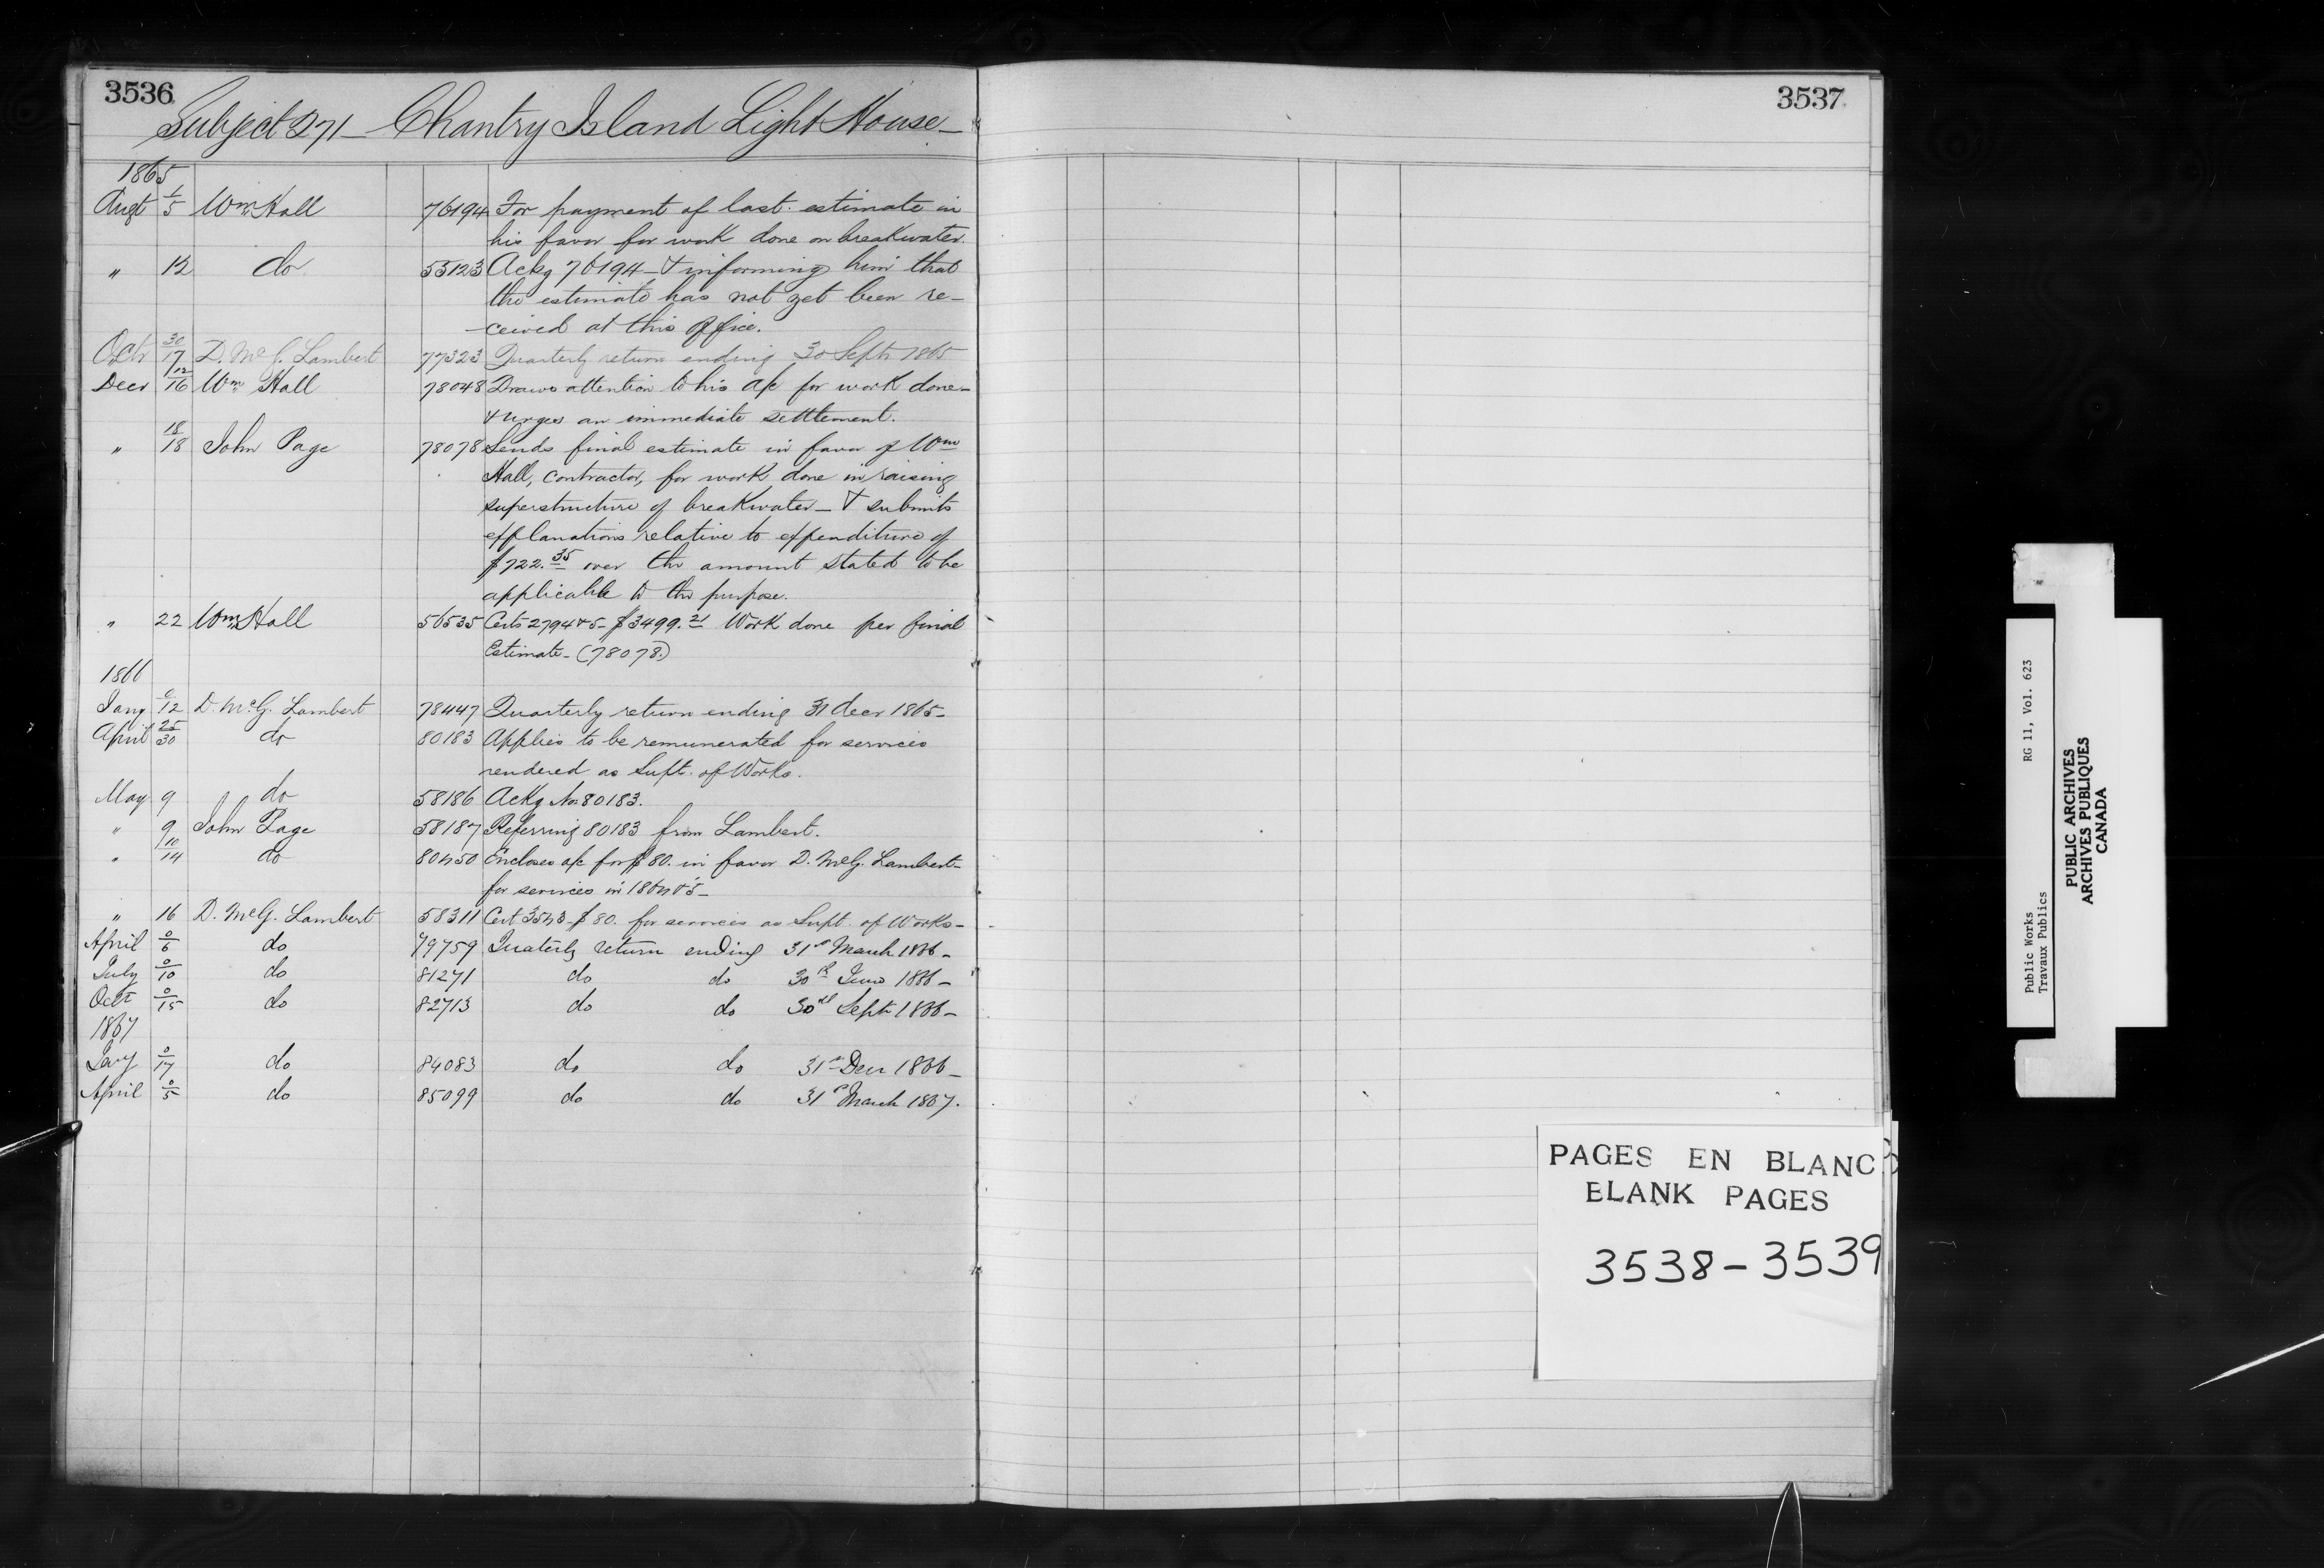 3536
Subject 271 — Chantry Island Light House —
1865
Augt 1/5 Wm Hall 76194 For payment of last estimate in
his favor for work done on breakwater.
" 12 do 55123 Ackg 76194 — & informing him that
the estimate has not yet been re-
-ceived at this Office.
Octr 30/17 D. McG. Lambert 77323 Quarterly return ending 30 Sept 1865
Decr 12/16 Wm Hall 78048 Draws attention to his a/c for work done —
& urges an immediate settlement.
" 18/18 John Page 78078 Sends final estimate in favor of Wm
Hall, Contractor, for work done in raising
superstructure of breakwater — & submits
explanations relative to expenditure of
$722.35 over the amount stated to be
applicable to the purpose.
" 22 Wm Hall 56535 Certs 2794 & 5 - $3499.21 Work done per final
Estimate - (78078.)
1866
Jany 0/12 D. McG. Lambert 78447 Quarterly return ending 31 decr 1865 -
April 25/30 do 80183 Applies to be remunerated for services
rendered as Supt. of Works.
May 9 do 58186 Ackg No 80183.
" 9 John Page 58187 Referring 80183 from Lambert.
" 10/14 do 80450 Encloses a/c for $80. in favor D. McG. Lambert -
for services in 1864 & 5 -
" 16 D. McG. Lambert 58311 Cert 3543 - $80. for services as Supt. of Works -
April 0/6 do 79759 Quaterly return ending 31st March 1866 -
July 0/10 do 81271 do do 30th June 1866 -
Octr 0/15 do 82713 do do 30th Sept 1866 -
1867
Jany 0/17 do 84083 do do 31st Decr 1866 -
April 0/5 do 85099 do do 31st March 1867.
3537
PAGES EN BLANC
BLANK PAGES
3538 - 3539
Public Works RG 11, Vol. 623
Travaux Publics
PUBLIC ARCHIVES
ARCHIVES PUBLIQUES
CANADA